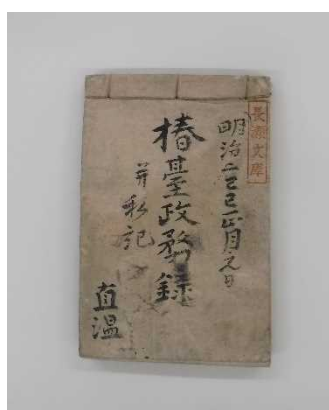 長瀬文庫
明治二己巳正月元日
椿臺政務録
并私記
直温